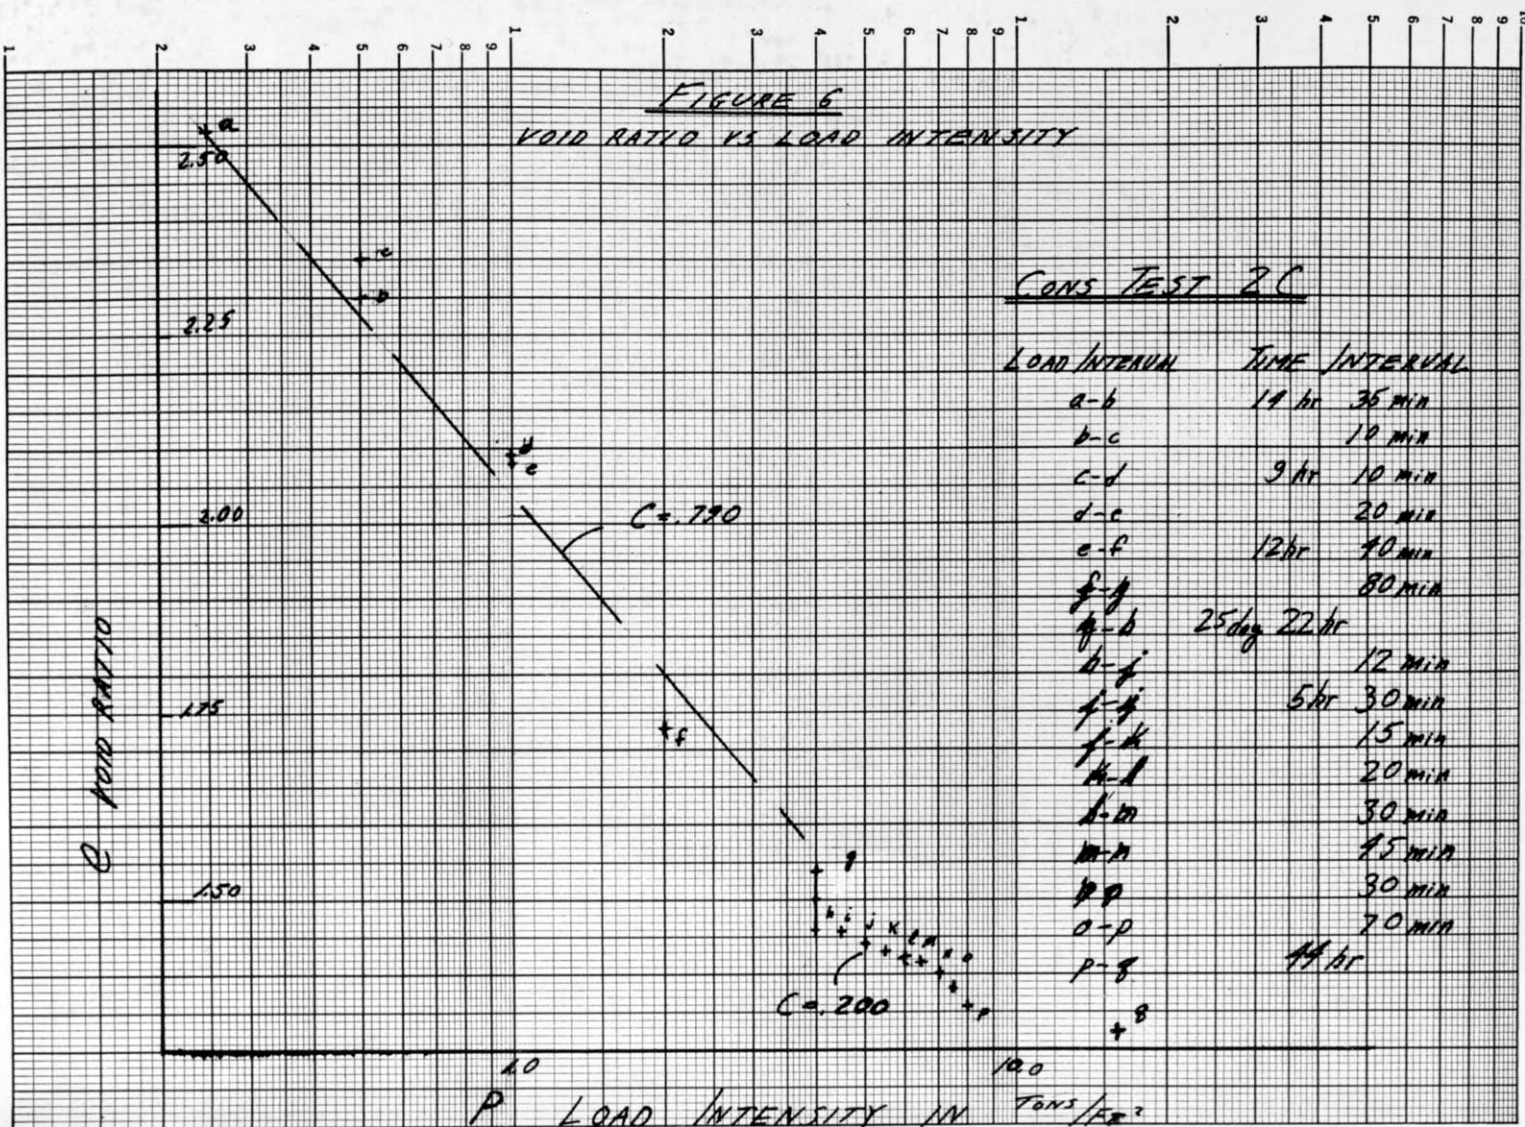 1 2 3 4 5 6 7 8 9 1 2 3 4 5 6 7 8 9 1 2 3 4 5 6 7 8 9 10
FIGURE 6
VOID RATIO VS LOAD INTENSITY
a
2.50
c
b
2.25
d
e
2.00
C=.790
1.75
f
1.50
h i j k l m n o
p
C=.200
q
1.0
10.0
e VOID RATIO
P LOAD INTENSITY IN TONS/FT²
CONS TEST 2C
LOAD INTERVAL TIME INTERVAL
a-b 14 hr 35 min
b-c 10 min
c-d 9 hr 10 min
d-e 20 min
e-f 12 hr 40 min
f-g 80 min
g-h 25 day 22 hr
12 min
5 hr 30 min
j-k 15 min
k-l 20 min
l-m 30 min
m-n 45 min
30 min
o-p 70 min
p-q 44 hr